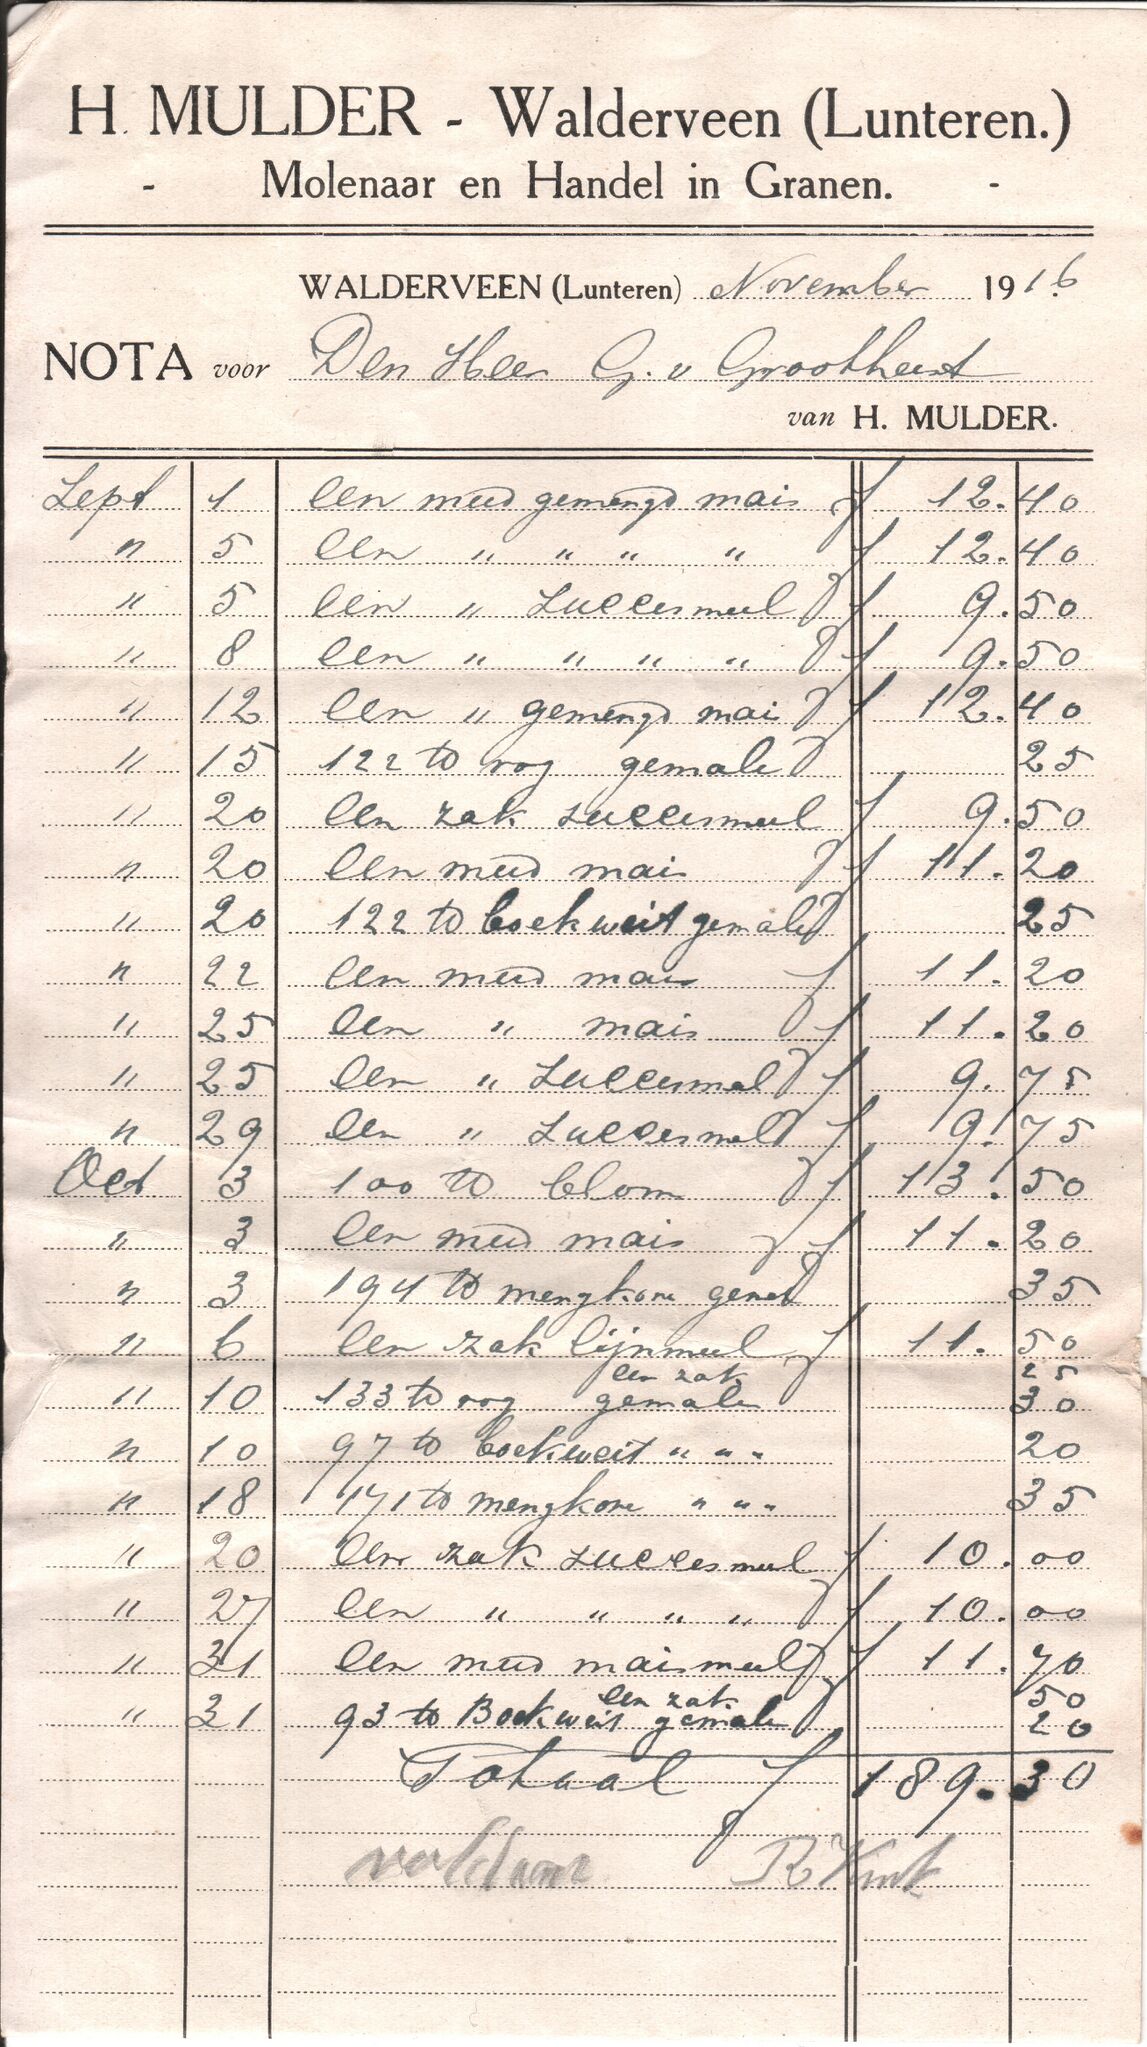 H. MULDER - Walderveen (Lunteren.)
- Molenaar en Handel in Granen. -
WALDERVEEN (Lunteren) November 1916
NOTA voor Den Heer G. v Grootheest
van H. MULDER.
Sept 1 een mud gemengd mais f 12.40
" 5 een " " " " f 12.40
" 5 een " Succesmeel f 9.50
" 8 een " " " " f 9.50
" 12 een " gemengd mais f 12.40
" 15 122 ℔ rog gemale 25
" 20 een zak succesmeel f 9.50
" 20 een mud mais f 11.20
" 20 122 ℔ boekweit gemale 25
" 22 een mud mais f 11.20
" 25 een " mais f 11.20
" 25 een " Succesmeel f 9.75
" 29 een " Succesmeel f 9.75
Oct 3 100 ℔ blom f 13.50
" 3 een mud mais f 11.20
" 3 194 ℔ mengkore gemal 35
" 6 een zak lijnmeel f 11.50
een zak 25
" 10 133 ℔ rog gemale 30
" 10 97 ℔ boekweit " " " 20
" 18 171 ℔ mengkore " " " 35
" 20 een zak succesmeel f 10.00
" 27 een " " " " f 10.00
" 31 een mud maismeel f 11.70
een zak 50
" 31 93 ℔ Boekweit gemale 20
Totaal f 189.30